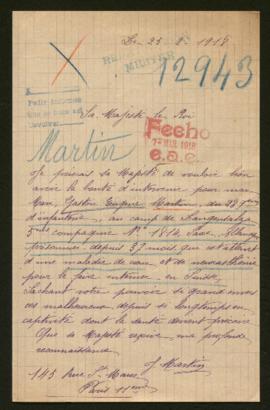 Le 25 1918
RE MILITER
12943
Petit
Sa Majesté le Roi
Fecho
MAR 1918
e.a.c.
Martin
Je prierais Sa Majesté de vouloir bien
avoir la bonté d'intervenir pour mon
Mari Gaston Eugène Martin, du
d'infanterie, au camp de Langensalza
5me compagnie No 1812
prisonnier depuis 37 mois, qui est atteint
d'une maladie de cœur et de neurasthénie
pour le faire interner en Suisse
Sachant votre pouvoir si grand envers
ces malheureux depuis si longtemps en
captivité dont la santé devient précaire
Que sa Majesté reçoive ma profonde
reconnaissance
J Martin
145 Rue St Maur
Paris 11eme